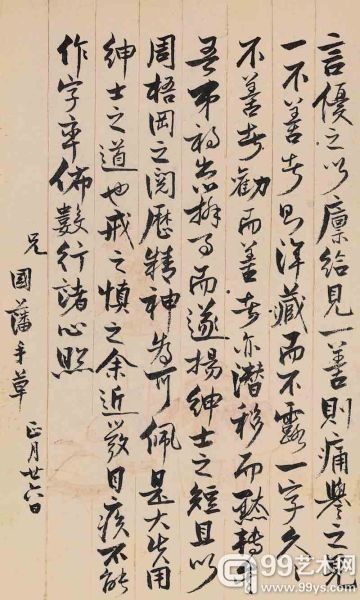 言優之以廩給見一善則痛譽之見
一不善者則渾藏而不露一字久久
不善者勸而善者亦潛移而默轉矣
吾弟初出辦事而遂揚紳士之短且以
周梧岡之閱歷精神為可佩是大失用
紳士之道也戒之慎之余近發目疾不能
作字率佈數行諸心照
兄國藩手草 正月廿八日
99艺术网
www.99ys.com